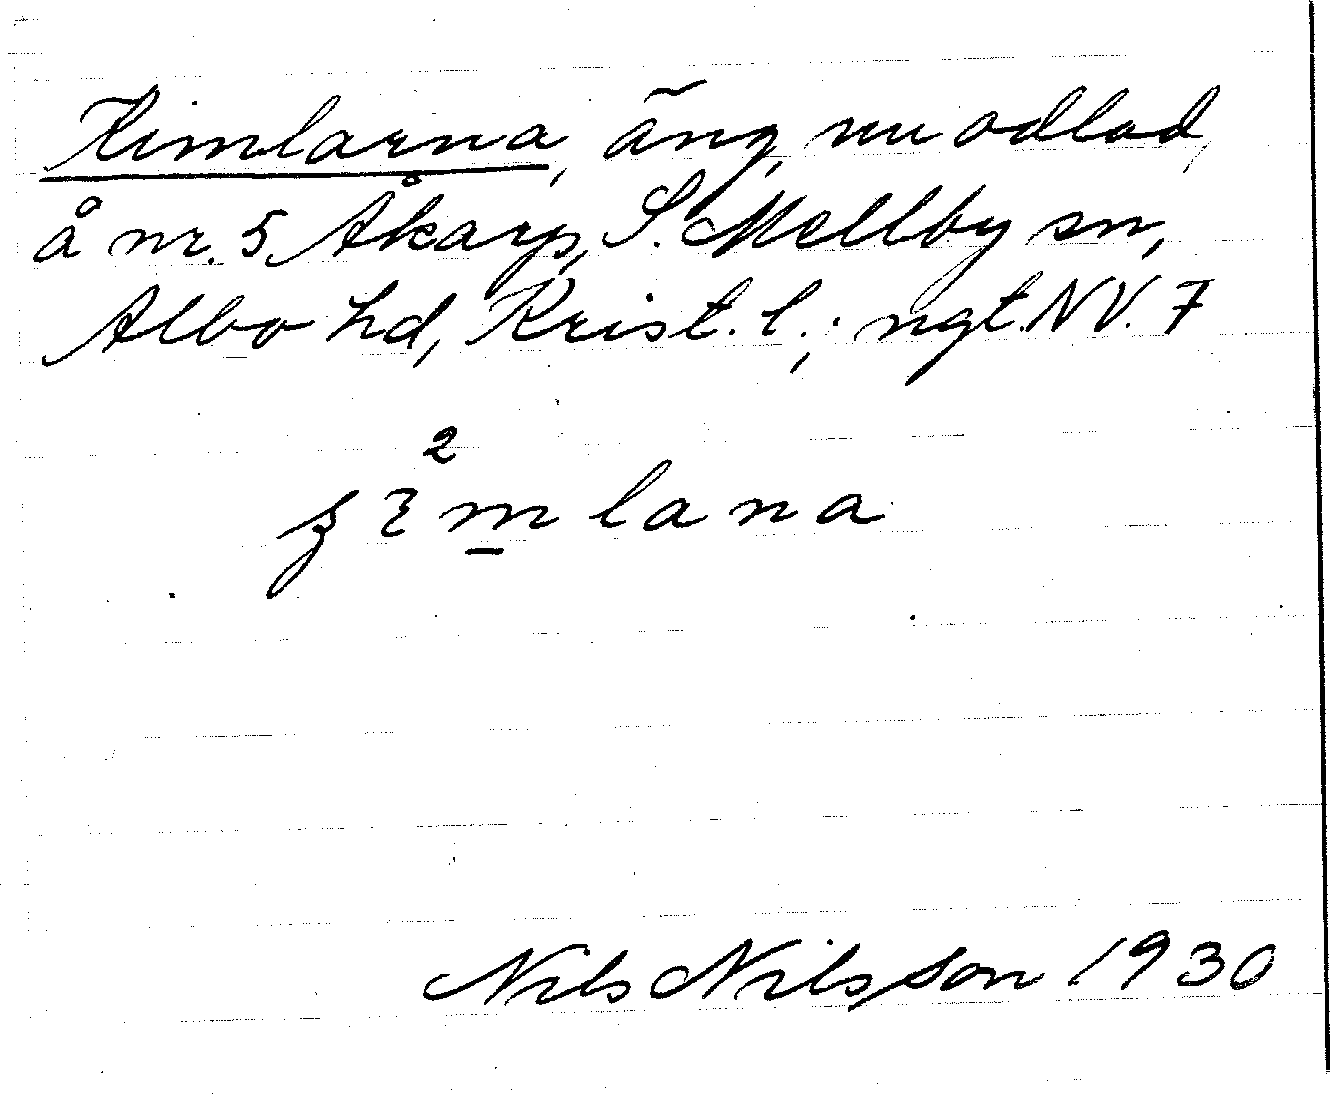 Kimlarna, äng, nu odlad,
å nr. 5 Åkarp, S. Mellby sn,
Albo hd, Krist. l.; ngt. NV. 7
2
lana
Nils Nilsson 1930